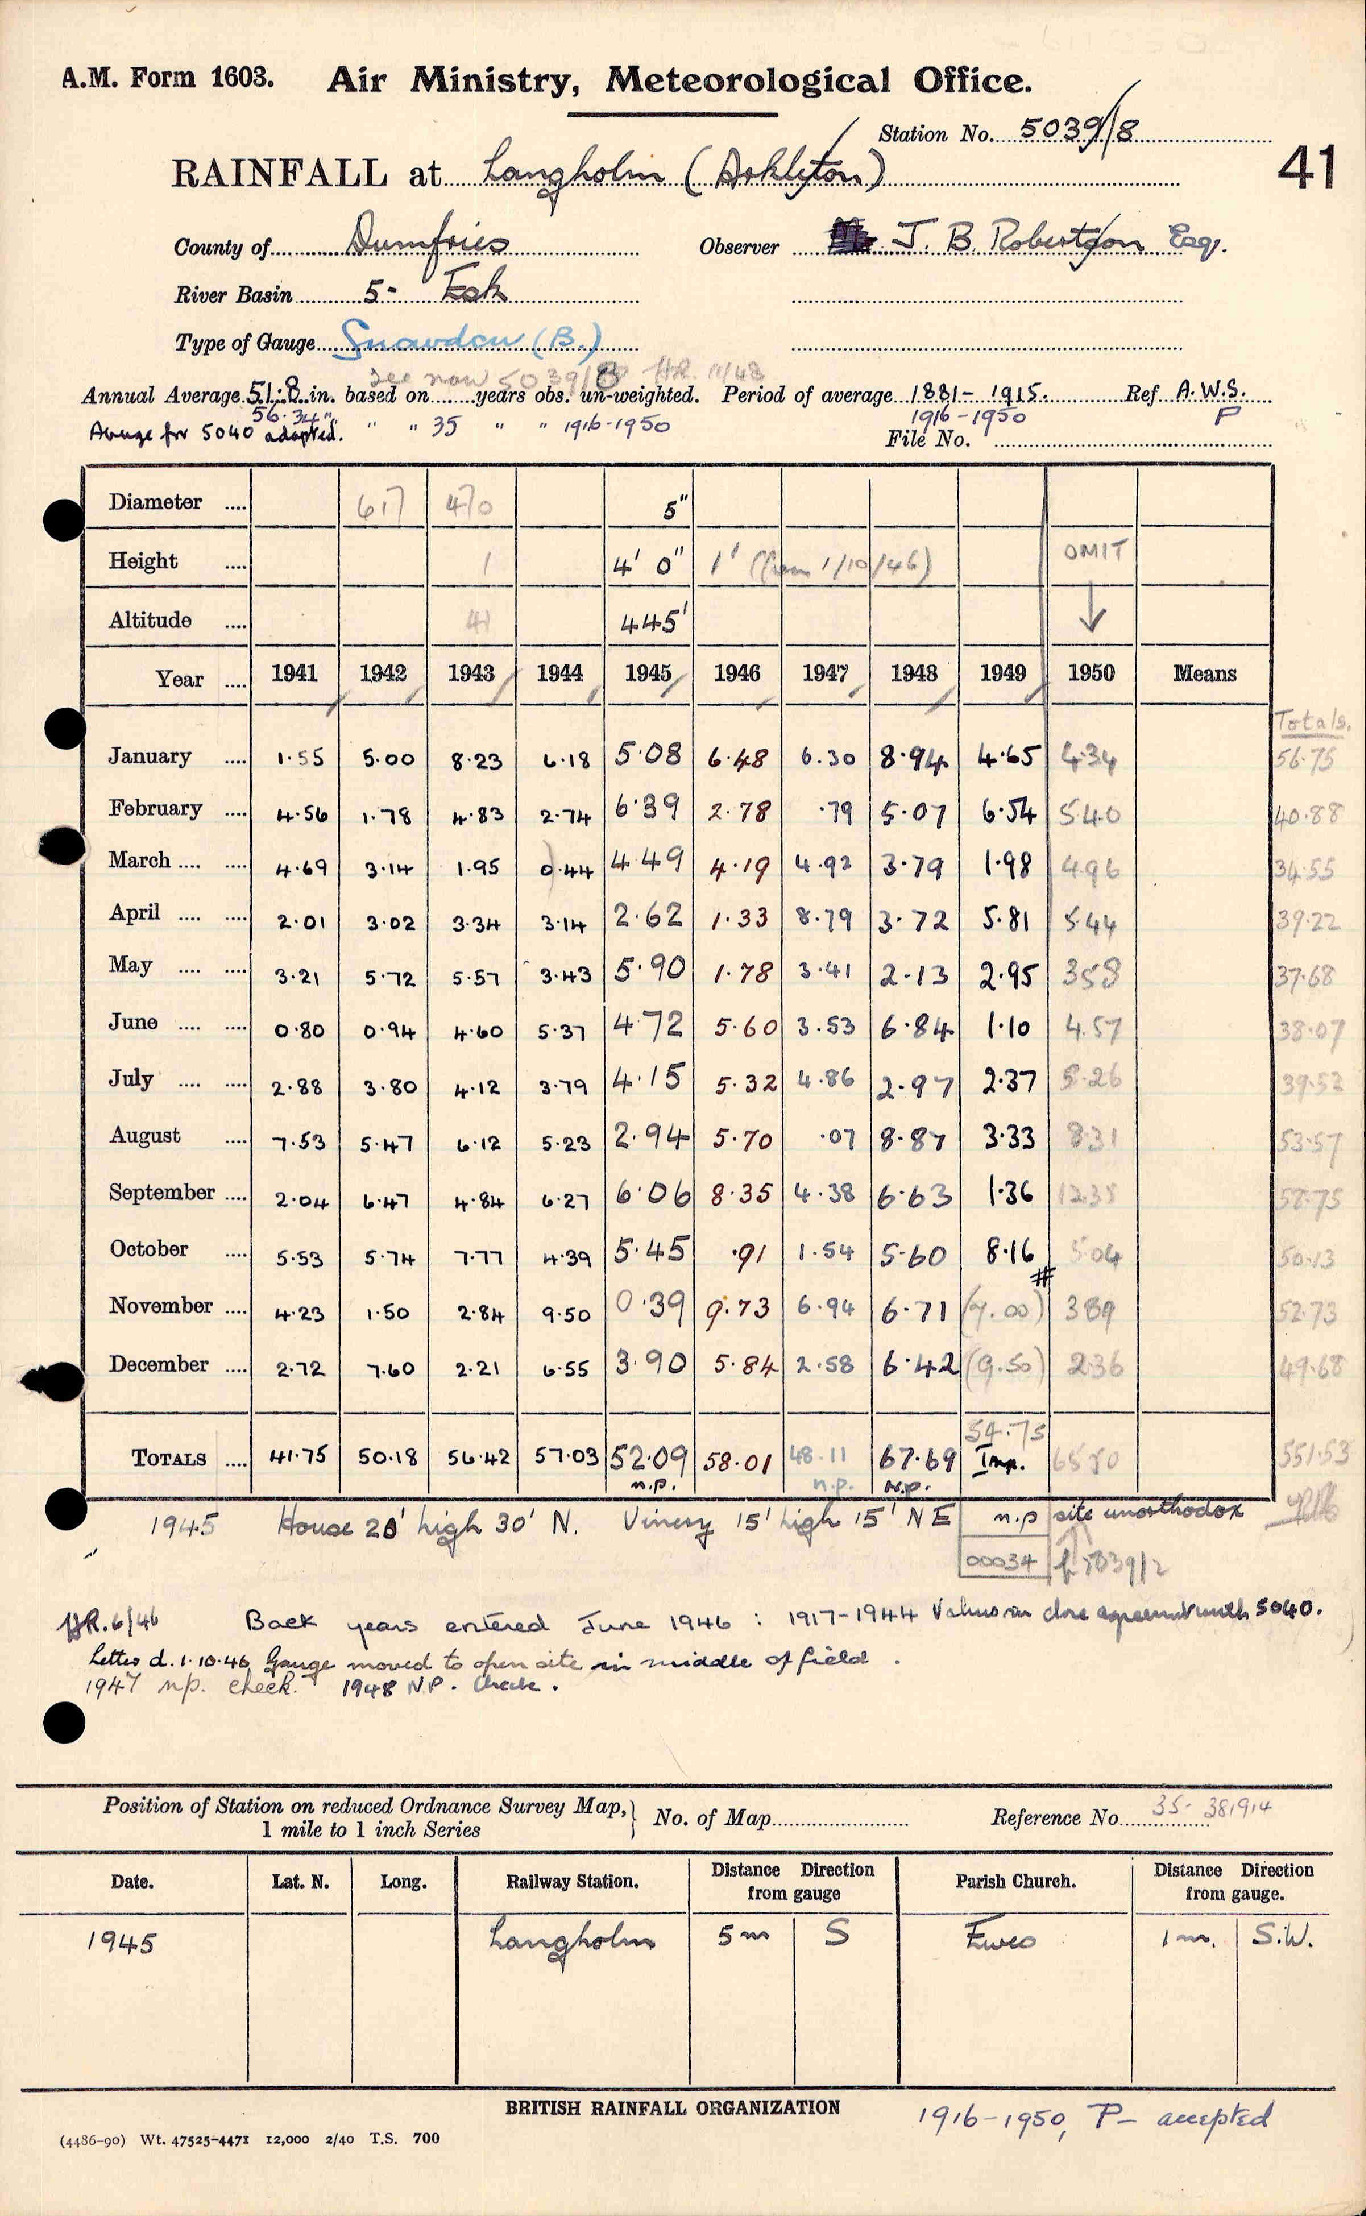 A.M. Form 1603. Air Ministry, Meteorological Office.
Station No. 5039/8
41
RAINFALL at Langholm (Arkleton)
County of Dumfries Observer J. B. Robertson Esq.
River Basin 5- Esk
Type of Gauge Snowdon (B.)
see now 5039/8 HR. 11/48
Annual Average 51.8 in. based on years obs. un-weighted. Period of average 1881-1915. Ref A.W.S.
56.34" 1916-1950 P
Average for 5040 adopted. " " 35 " " 1916-1950 File No.
Diameter .... 617 470 5"
Height .... 1 4' 0" 1' (from 1/10/46) OMIT
Altitude .... 41 445'
Year .... 1941 1942 1943 1944 1945 1946 1947 1948 1949 1950 Means
Totals.
January .... 1.55 5.00 8.23 6.18 5.08 6.48 6.30 8.94 4.65 4.34 56.75
February .... 4.56 1.78 4.83 2.74 6.39 2.78 .79 5.07 6.54 5.40 40.88
March .... .... 4.69 3.14 1.95 0.44 4.49 4.19 4.92 3.79 1.98 4.96 34.55
April .... .... 2.01 3.02 3.34 3.14 2.62 1.33 8.79 3.72 5.81 5.44 39.22
May .... .... 3.21 5.72 5.57 3.43 5.90 1.78 3.41 2.13 2.95 3.58 37.68
June .... .... 0.80 0.94 4.60 5.37 4.72 5.60 3.53 6.84 1.10 4.57 38.07
July .... .... 2.88 3.80 4.12 3.79 4.15 5.32 4.86 2.97 2.37 5.26 39.52
August .... 7.53 5.47 6.12 5.23 2.94 5.70 .07 8.87 3.33 8.31 53.57
September .... 2.04 6.47 4.84 6.27 6.06 8.35 4.38 6.63 1.36 12.35 58.75
October .... 5.53 5.74 7.77 4.39 5.45 .91 1.54 5.60 8.16 5.04 50.13
#
November .... 4.23 1.50 2.84 9.50 0.39 9.73 6.94 6.71 (7.00) 3.89 52.73
December .... 2.72 7.60 2.21 6.55 3.90 5.84 2.58 6.42 (9.50) 2.36 49.68
54.75
TOTALS .... 41.75 50.18 56.42 57.03 52.09 58.01 48.11 67.69 Imp. 65.50 551.53
n.p. n.p. N.p.
1945 House 20' high 30' N. Vinery 15' high 15' NE n.p site unorthodox
00034 f 5039/2
HR. 6/46 Back years entered June 1946 : 1917-1944 Values in close agreement with 5040.
Letter d. 1.10.46 Gauge moved to open site in middle of field.
1947 np. check. 1948 N.P. Check.
Position of Station on reduced Ordnance Survey Map, 1 mile to 1 inch Series } No. of Map Reference No 35- 381914
Date. Lat. N. Long. Railway Station. Distance Direction from gauge Parish Church. Distance Direction from gauge.
1945 Langholm 5 m S Ewes 1 m. S.W.
BRITISH RAINFALL ORGANIZATION
1916-1950, P- accepted
(4486-90) Wt. 47525-4471 12,000 2/40 T.S. 700